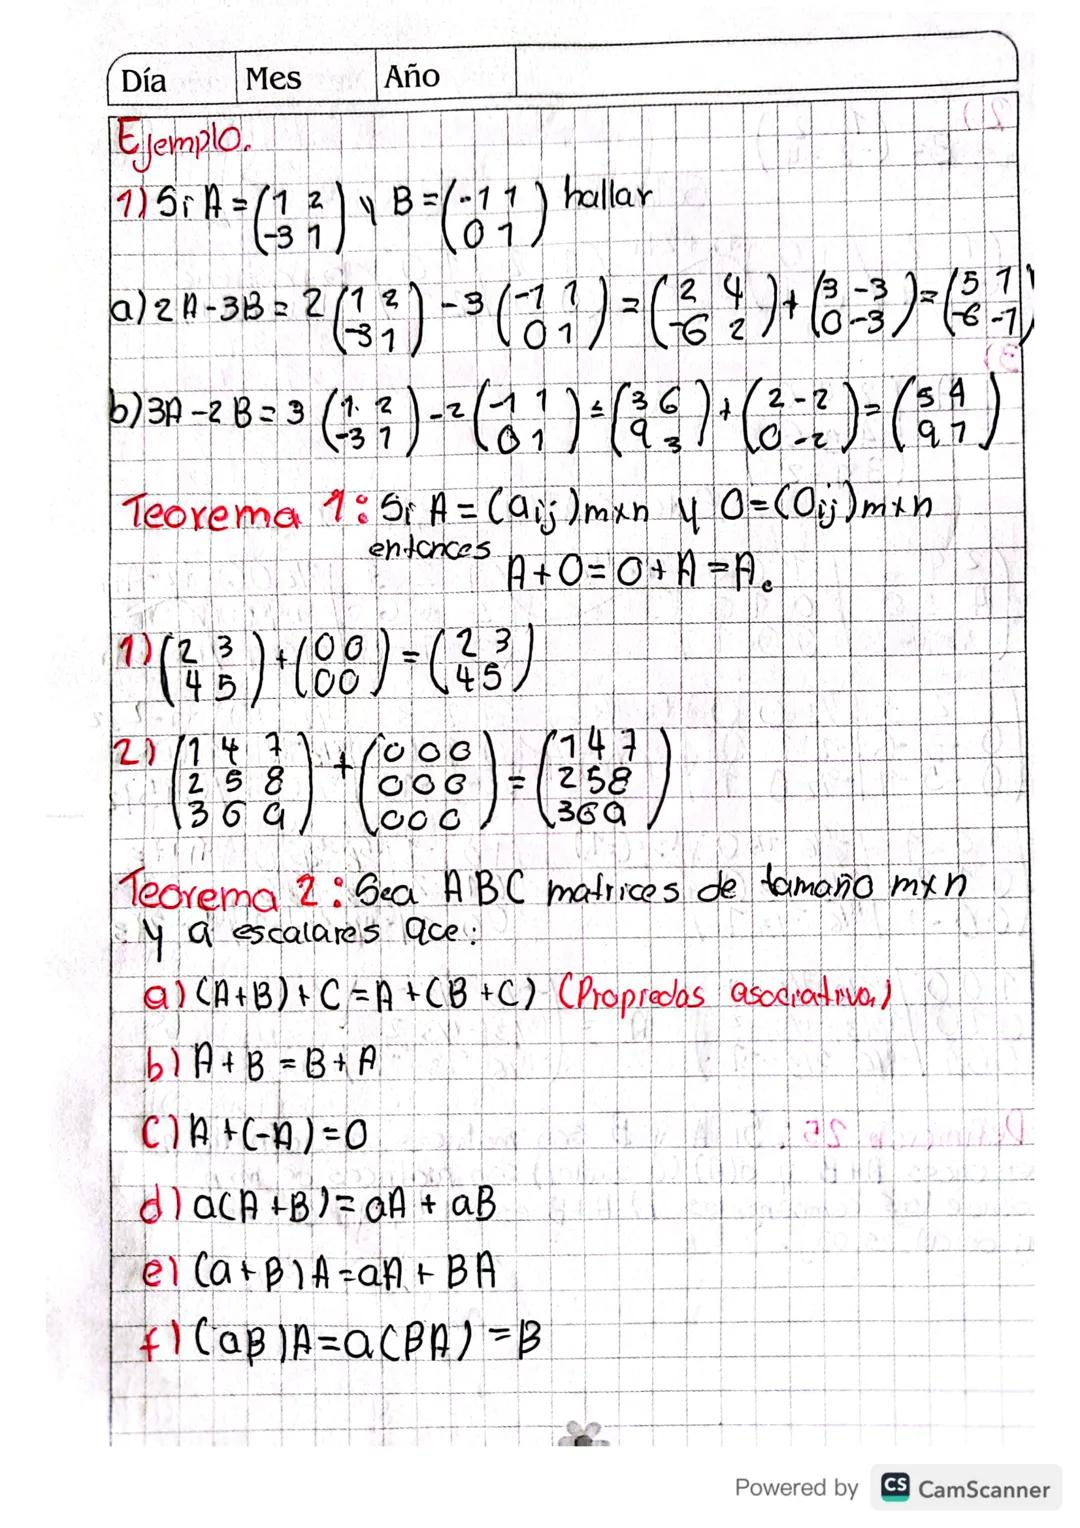 Día Mes Año
Ejemplo.
1) Si A = (1 2 / -3 1) y B = (-1 1 / 0 1) hallar
a) 2A - 3B = 2 (1 2 / -3 1) - 3 (-1 1 / 0 1) = (2 4 / -6 2) + (3 -3 / 0 -3) = (5 1 / -6 -1)
b) 3A - 2B = 3 (1 2 / -3 1) - 2 (-1 1 / 0 1) = (3 6 / 9 3) + (2 -2 / 0 -2) = (5 4 / 9 1)
Teorema 1: Si A = (aij)mxn y O = (Oij)mxn
entonces
A + O = O + A = A.
1) (2 3 / 4 5) + (0 0 / 0 0) = (2 3 / 4 5)
2) (1 4 7 / 2 5 8 / 3 6 9) + (0 0 0 / 0 0 0 / 0 0 0) = (1 4 7 / 2 5 8 / 3 6 9)
Teorema 2: Sea A B C matrices de tamaño mxn
y a escalares qce:
a) (A+B) + C = A + (B + C) (Propiedas asociativa)
b) A + B = B + A
c) A + (-A) = 0
d) a(A + B) = aA + aB
e) (a + B) A = aA + BA
f) (aB) A = a (BA) = B
Powered by CS CamScanner